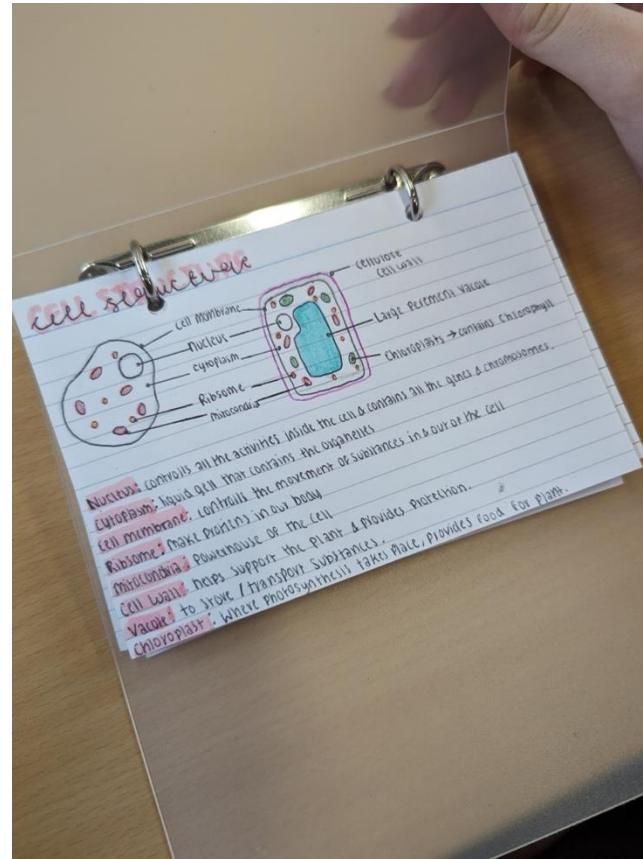 CELL STRUCTURE
cellulose
cell wall
cell membrane
nucleus
cytoplasm
Large perement vacole
Chloroplasts → contains chlorophyll
Ribsome
mitocondia
Nucleus: controlls all the activities inside the cell & contains all the genes & chromosomes.
Cytoplasm: liquid gell that contains the organelles
Cell membrane: controlls the movement of substances in & out of the cell
Ribsome: make protiens in our body
Mitocondria: powerhouse of the cell
Cell wall: helps support the plant & provides protection.
Vacole: to store / transport substances.
Chloroplast: where photosynthesis takes place, provides food for plant.